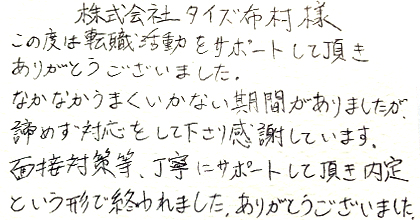 株式会社タイズ布村様
この度は転職活動をサポートして頂き
ありがとうございました.
なかなかうまくいかない期間がありましたが、
諦めず対応をして下さり感謝しています。
面接対策等、丁寧にサポートして頂き内定
という形で終われました。ありがとうございました。